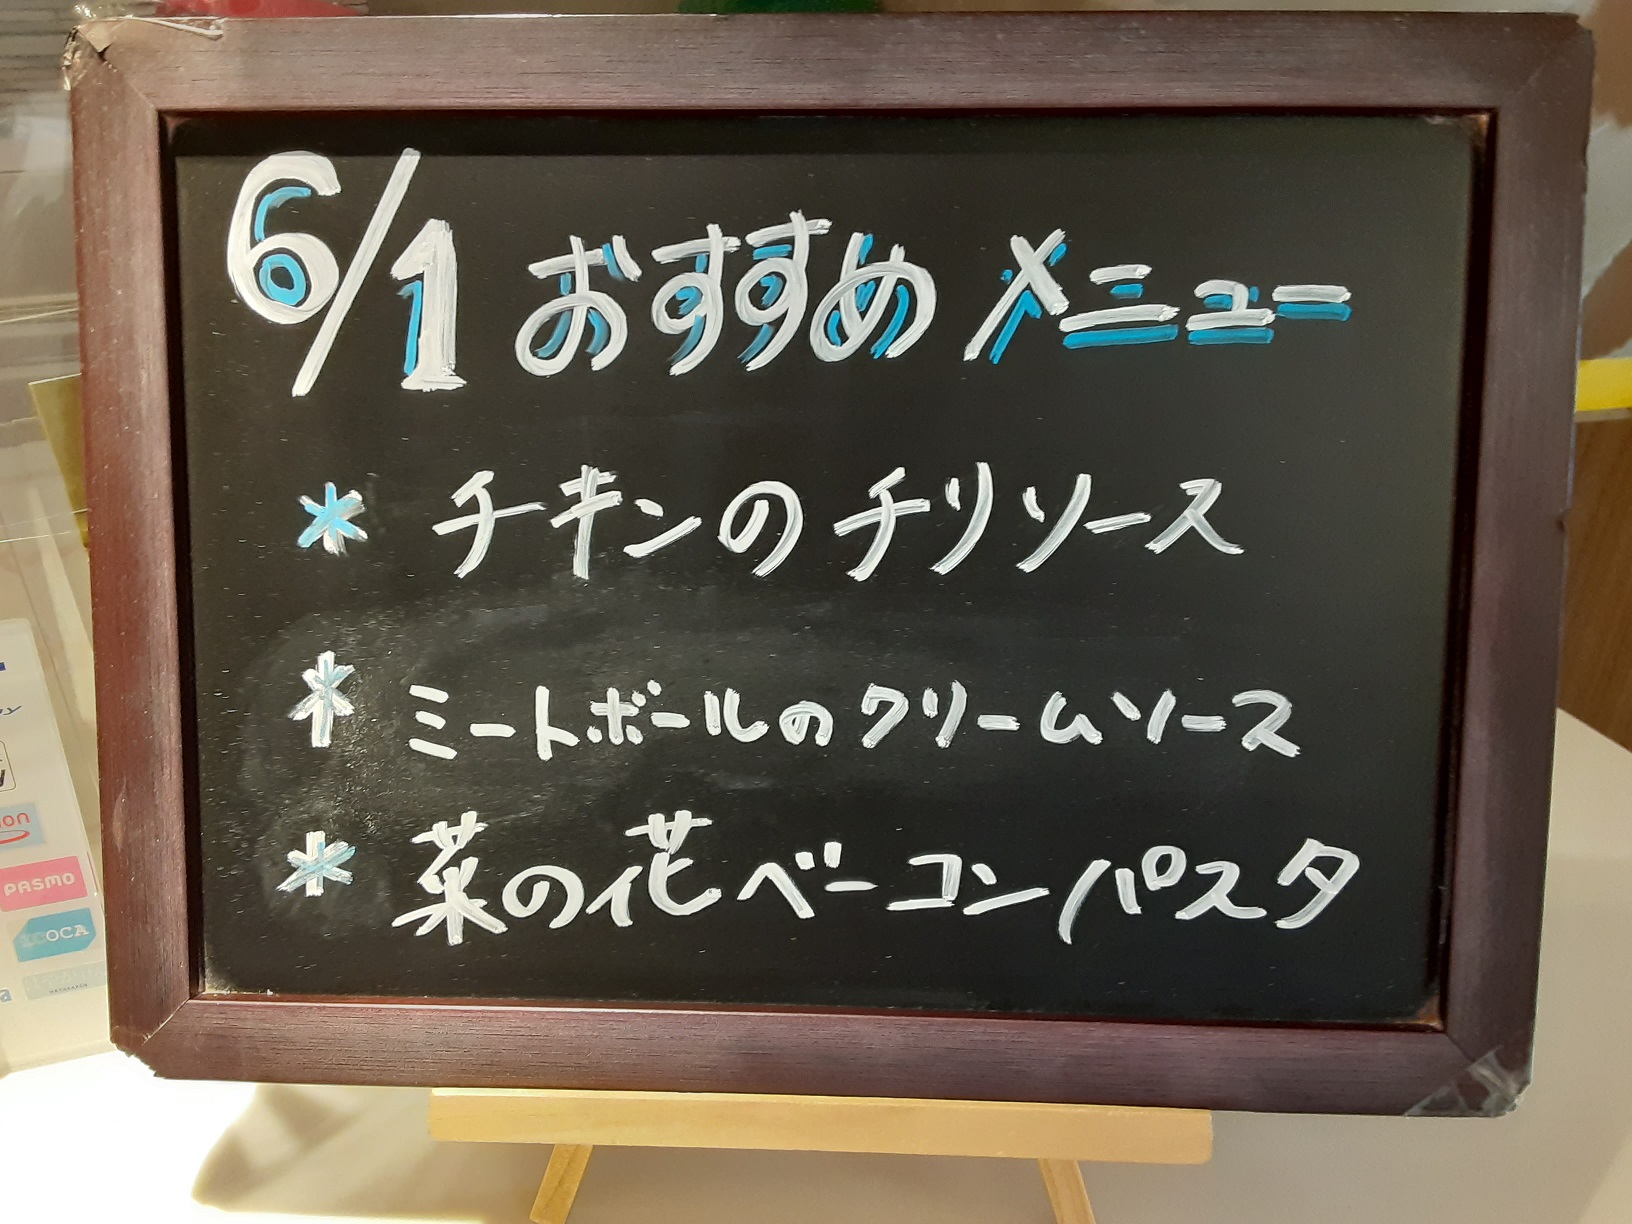 6/1 おすすめ メニュー
* チキンのチリソース
* ミートボールのクリームソース
* 菜の花ベーコンパスタ
PASMO
ICOCA